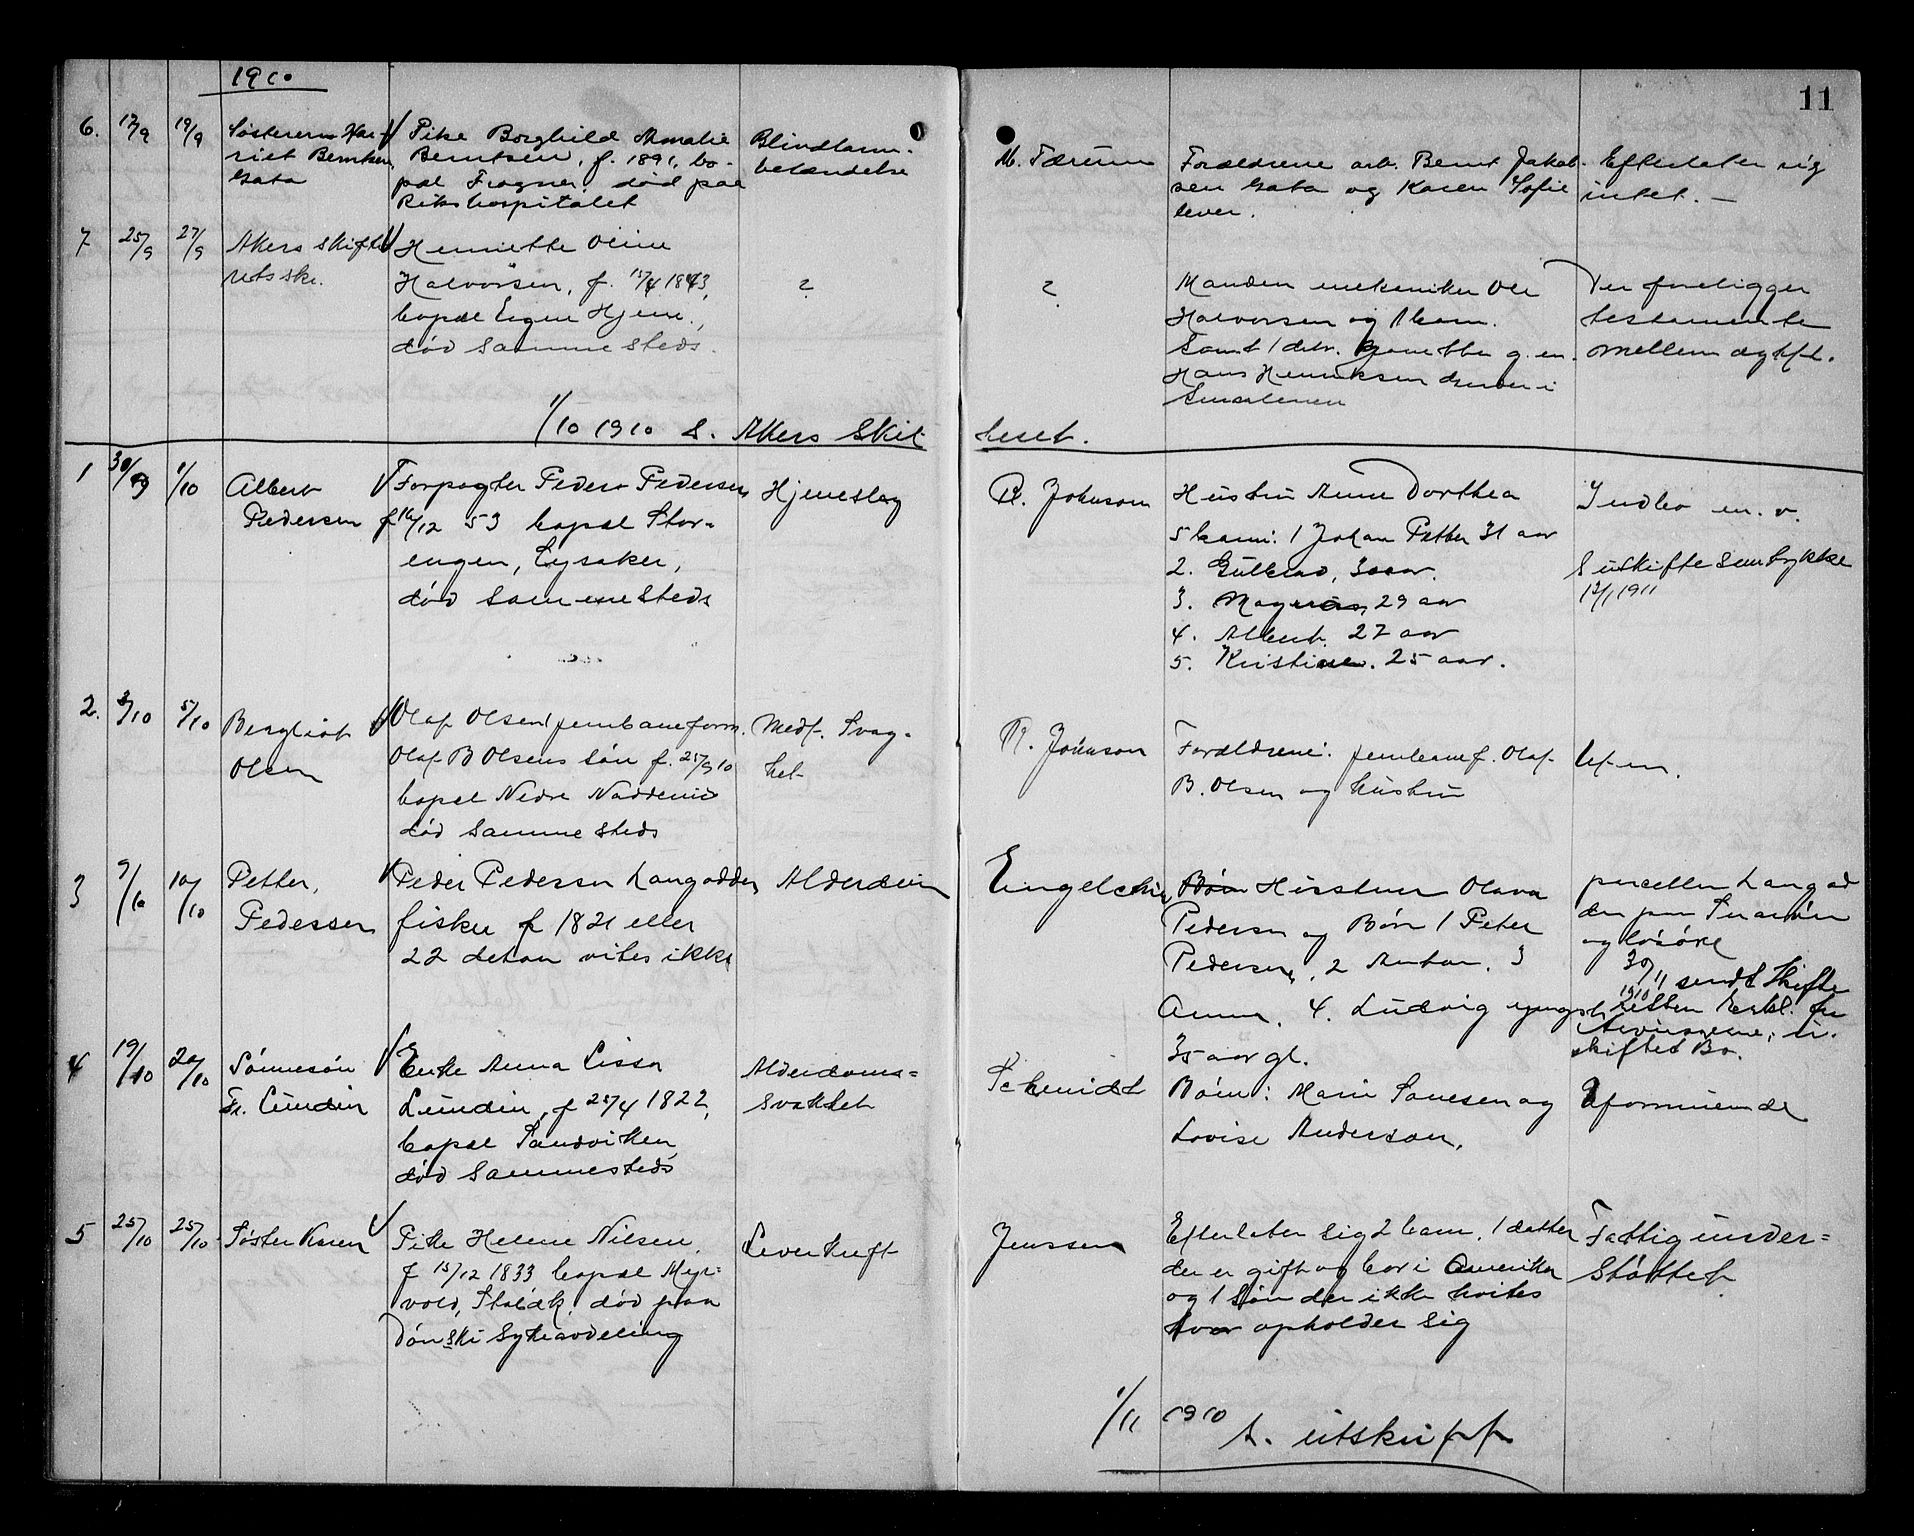 1910
11
6. 17/9 19/9
Søsteren Har-
riet Berntsen
Gata
Pike Borghild Amalie
Berntsen, f. 1891, bo-
pæl Frogner, død paa
Rikshospitalet
Blindtarm-
betændelse
M. Tærum
Forældrene arb. Bernt Jakob-
sen Gata og Karen Sofie
lever.
Efterlater sig
intet. —
7 25/9 27/9
Akers skifte
rets skr.
Henriette Oline
Halvorsen, f. 15/4 1843,
bopæl Engen Hjem,
død sammesteds.
?
?
Manden mekaniker Ole
Halvorsen og 1 barn.
Samt 1 datr. g. m.
Hans Henriksen
Smaalenen
Der foreligger
testamente
mellem ægtef.
1/10 1910 S. Akers Skif
teret.
1 30/9 1/10
Albert
Pedersen
Forpagter Peder Pedersen
f 16/12 53 bopæl Stor-
engen, Lysaker,
død sammesteds
Hjerneslag
R. Johnson
Hustru Anne Dorthea
5 barn: 1 Johan Petter 31 aar
2. Gulbrand, 30 aar.
3. Magnus, 29 aar
4. Albert 27 aar
5. Kristine. 25 aar.
Indbo m. v.
S uskifte samtykke
12/1 1911
2. 3/10 5/10
Bergliot
Olsen
Olaf Olsen jernbaneform.
Olaf B Olsens søn f. 25/9 10
bopæl Nedre Nadderud
død sammesteds
Medf. Svag-
het
R. Johnson
Forældrene: jernbanef. Olaf
B. Olsen og hustru
Uf-m.
3 9/10 10/10
Petter
Pedersen
Peder Pedersen Langodden
fisker f 1821 eller
22 datoen vites ikke
Alderdom
Engelschiøn
Børn Hustruen Olava
Pedersen og Børn 1 Peter
Pedersen, 2 Anton. 3
Anna. 4. Ludvig yngst
35 aar gl.
parcellen Langod
den paa Snarøen
og løsøre
30/11 1910 sendt Skifte
retten Erkl. fra
Arvingerne, u.
skiftet Bo.
4 19/10 20/10
Sønnesøn
Fr. Lundin
Enke Anna Lissa
Lundin, f 25/4 1822,
bopæl Sandviken
død sammesteds
Alderdoms-
svakhet
Schmidt
Børn: Marie Sanesen og
Lovise Anderson.
Uformuende
5 25/10 25/10
Søster Karen
Pike Helene Nilsen,
f 15/12 1833 bopæl Myr-
vold, Stabæk, død paa
Dønski Sykeavdeling
Leverkreft
Jenssen
Efterlater sig 2 barn, 1 datter
der er gift og bor i Amerika
og 1 søn der ikke vites
hvor opholder sig
Fattigunder-
støttet.
1/11 1910
S. utskrift